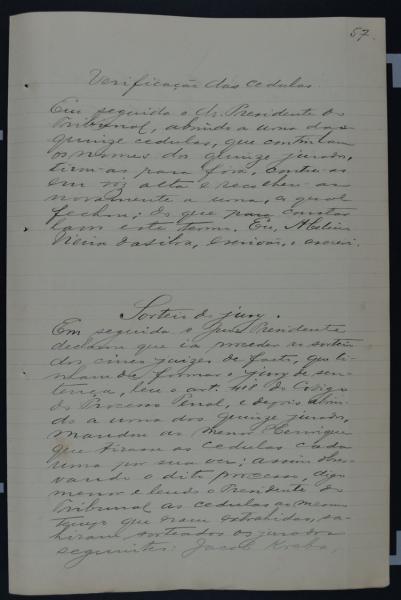 57.
Verificação das cedulas.
Em seguida o dr. Presidente do
Tribunal, abrindo a urna das
quinze cedulas, que continham
os nomes dos quinze jurados,
tirou-as para fóra, contou-as
em voz alta e recolheu-as
novamente a urna, a qual
fechou; do que para constar
lavro este termo. Eu,
Vieira da Silva, escrivão, o escrevi.
Sorteio do jury.
Em seguida o juiz Presidente
declarou que ia proceder o sorteio
dos cinco juizes de facto, que ti-
nham de formar o jury de sen-
tença, leu o art. do Codigo
do Processo Penal, e depois abrin-
do a urna dos quinze jurados,
mandou ao menor Henrique
que tirasse as cedulas cada
uma por sua vez; assim obser-
vando o dito processo, digo
menor e lendo o Presidente do
Tribunal as cedulas ao mesmo
tempo que eram extrahidas, sa-
hiram sorteados os jurados
seguintes: Jacob